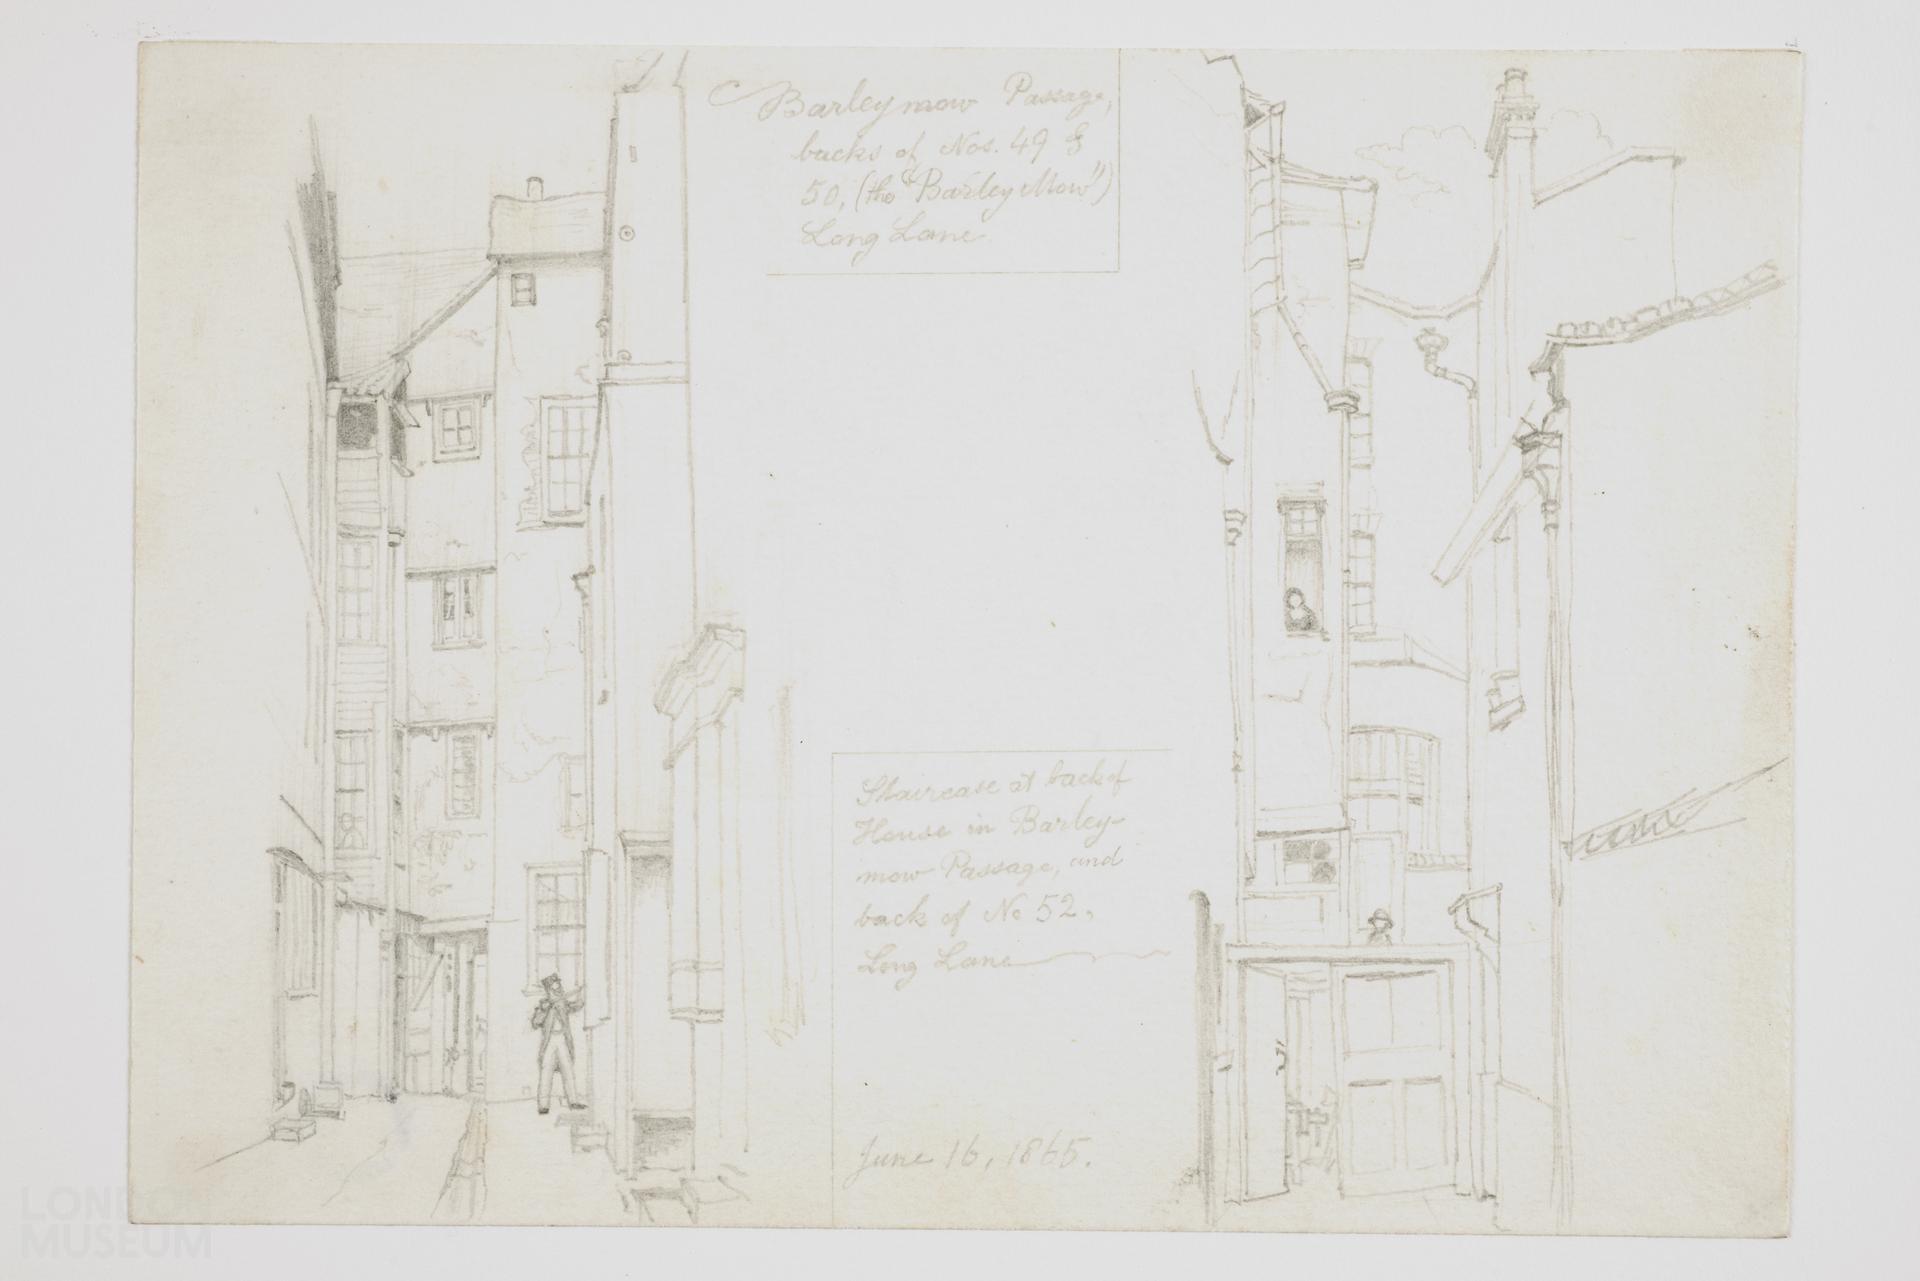 Barley mow Passage,
backs of Nos. 49 &
50, (the "Barley Mow")
Long Lane
Staircase at back of
House in Barley-
mow Passage, and
back of No 52,
Long Lane
June 16, 1865.
LONDON
MUSEUM